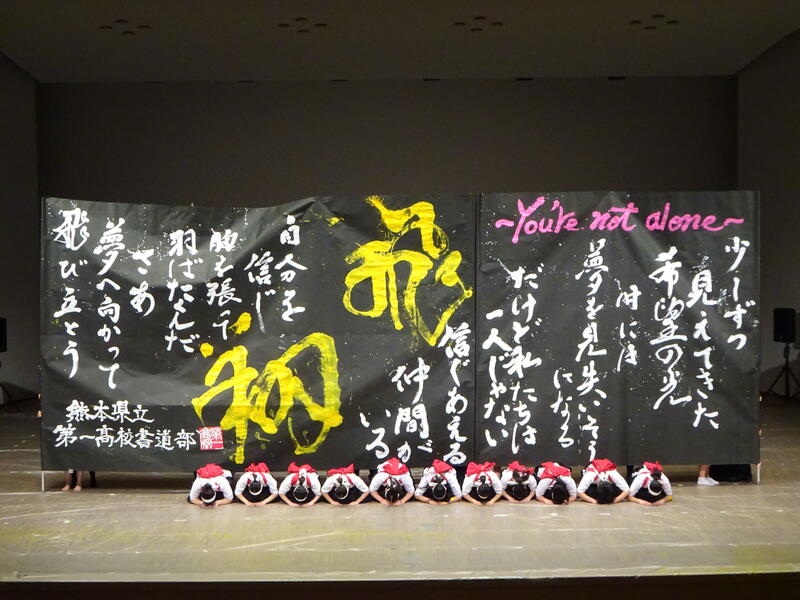 ~You're not alone~
少しずつ
見えてきた
希望の光
時には
夢を見失いそう
になる
だけど私たちは
一人じゃない
信じあえる
仲間が
いる
飛
翔
自分を
信じ
胸を張って
羽ばたんだ
さあ
夢へ向かって
飛び立とう
熊本県立
第一高校書道部